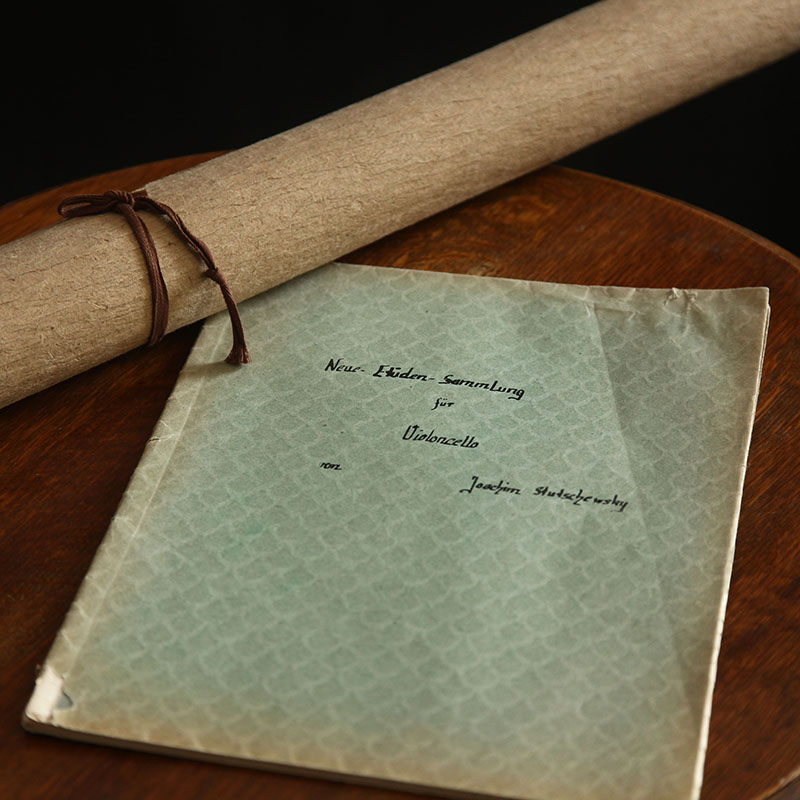 Neue-Etüden-Sammlung
für
Violoncello
von
Joachim Stutschewsky